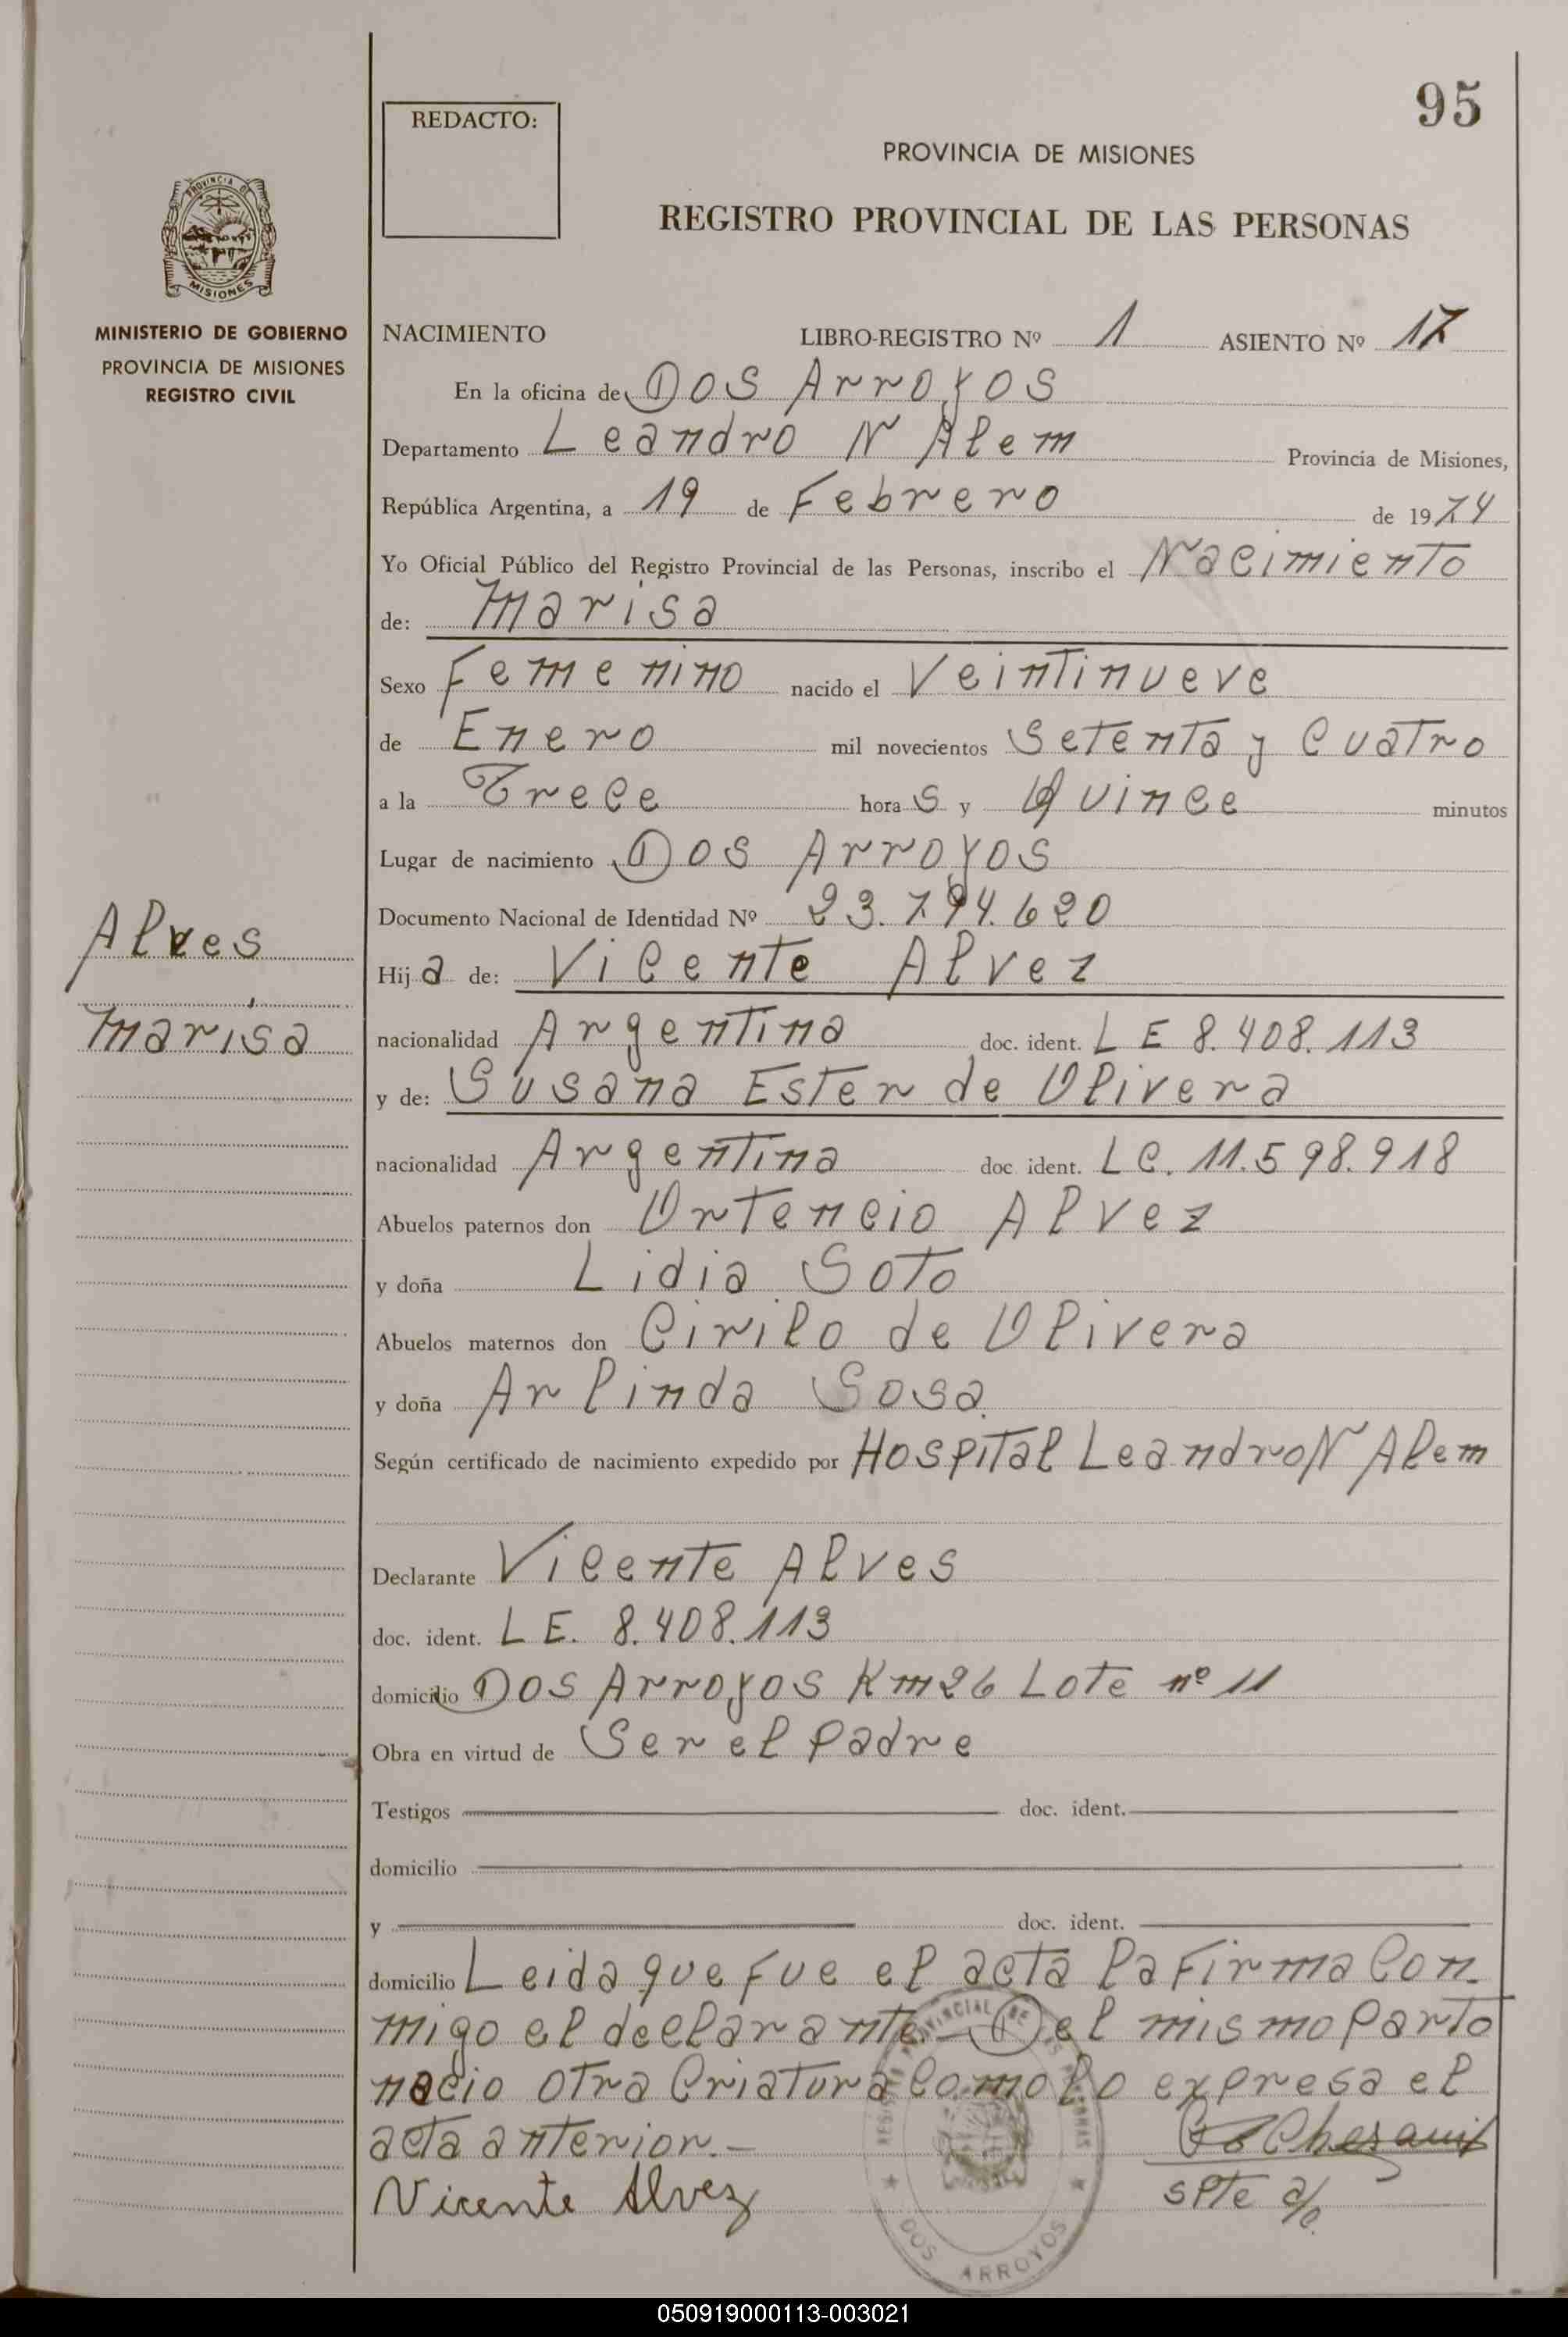 95
REDACTO:
PROVINCIA DE MISIONES
REGISTRO PROVINCIAL DE LAS PERSONAS
PROVINCIA DE
MISIONES
MINISTERIO DE GOBIERNO
PROVINCIA DE MISIONES
REGISTRO CIVIL
NACIMIENTO LIBRO-REGISTRO Nº 1 ASIENTO Nº 17
En la oficina de Dos Arroyos
Departamento Leandro N Alem Provincia de Misiones,
República Argentina, a 19 de Febrero de 1974
Yo Oficial Público del Registro Provincial de las Personas, inscribo el Nacimiento
de: Marisa
Sexo Femenino nacido el Veintinueve
de Enero mil novecientos Setenta y Cuatro
a la Trece horas y Quince minutos
Lugar de nacimiento Dos Arroyos
Documento Nacional de Identidad Nº 23.794.620
Alves
Marisa
Hija de: Vicente Alvez
nacionalidad Argentina doc. ident. L E 8.408.113
y de: Susana Ester de Olivera
nacionalidad Argentina doc. ident. LC. 11.598.918
Abuelos paternos don Ortencio Alvez
y doña Lidia Soto
Abuelos maternos don Cirilo de Olivera
y doña Arlinda Sosa
Según certificado de nacimiento expedido por Hospital Leandro N Alem
Declarante Vicente Alves
doc. ident. L E. 8.408.113
domicilio Dos Arroyos Km 26 Lote nº 11
Obra en virtud de Ser el Padre
Testigos doc. ident.
domicilio
y doc. ident.
domicilio Leida que fue el acta la firma Con-
migo el declarante.— Del mismo parto
nacio otra Criatura Como lo expresa el
acta anterior.—
Vicente Alvez
Spte a/c.
REGISTRO PROVINCIAL DE LAS PERSONAS
DOS ARROYOS
050919000113-003021